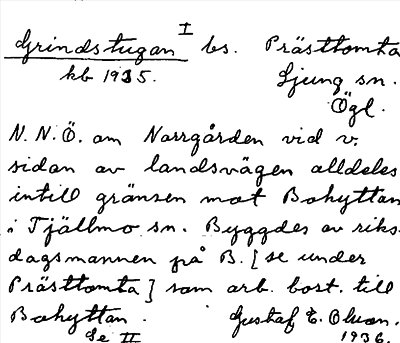 Grindstugan I bs. Prästtomta
kb 1935. Ljung sn.
Ögl.
N.N.Ö. om Norrgården vid v.
sidan av landsvägen alldeles
intill gränsen mot Bohyttan
i Tjällmo sn. Byggdes av riks-
dagsmannen på B. [se under
Prästtomta] som arb. bost. till
Bohyttan.
Se II Gustaf E. Olson.
1936.